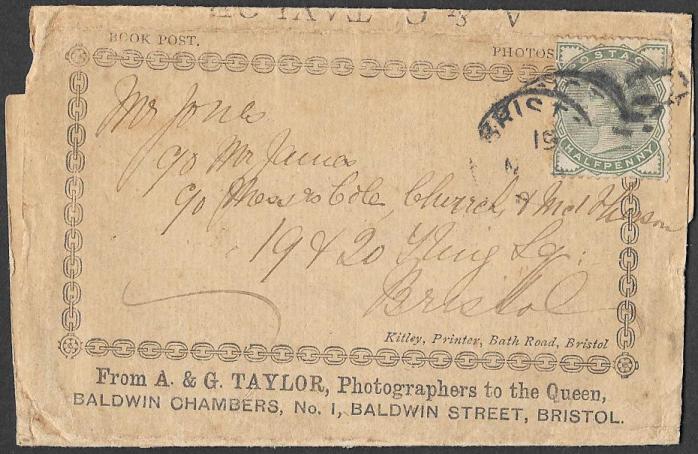 BOOK POST.
PHOTOS
POSTAGE
HALFPENNY
BRIST
19
Mr Jones
c/o Mr James
c/o Messrs Cole, Church, &
19 & 20 King Sq:
Bristol
Kitley, Printer, Bath Road, Bristol
From A. & G. TAYLOR, Photographers to the Queen,
BALDWIN CHAMBERS, No. 1, BALDWIN STREET, BRISTOL.